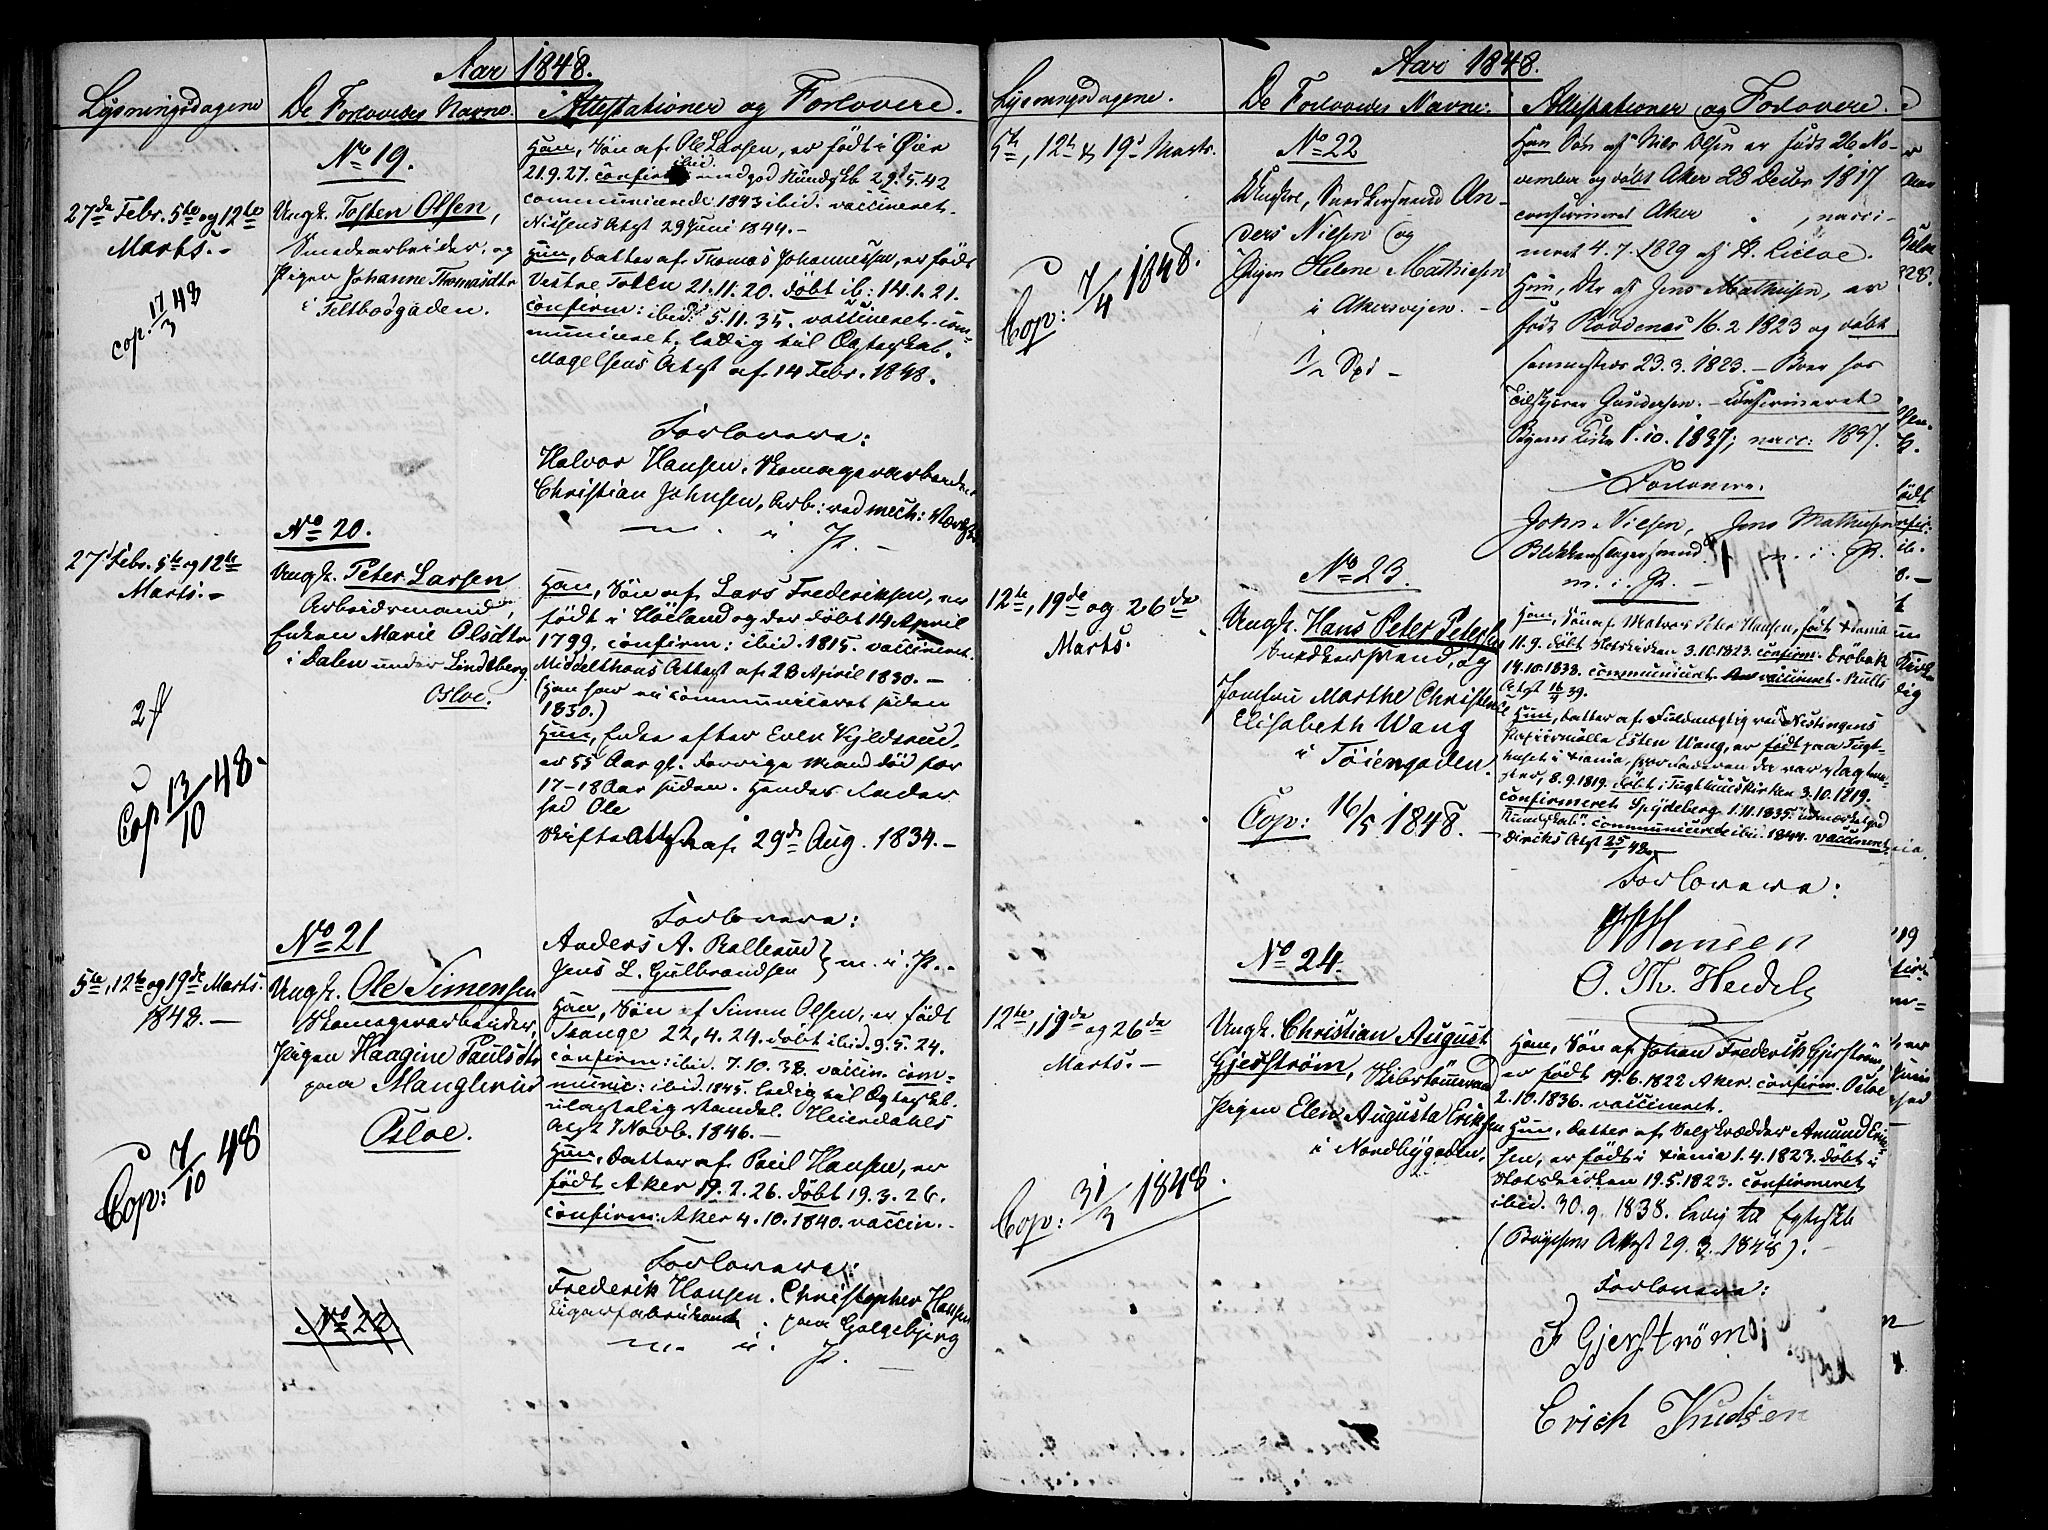 Aar 1848.
Lysningsdagene
De Forlovedes Navne.
Attestationer og Forlovere.
27de Febr. 5te og 12te
Marts.-
cop. 17/3 48
No 19.
Ungk. Tosten Olsen,
Smedearbeider, og
Pigen Johanne Thomasdtr
i Feltbodgaden.
Han, Søn af Ole Larsen, er født i Øier
21.9.27. confirm ibid. med god Kundskb 29.5.42
communicerede 1843 ibid. vaccineret.
Nissens Atgt 29 Juni 1844.-
Hun, Datter af Thomas Johannessen, er født
Vestre Toten 21.11.20. døbt ib: 14.1.21.
confirm: ibid: 5.11.35. vaccineret. com-
municeret; ledig til Ægteskab.
Magelsens Attst af 14 Febr. 1848.
Forlovere:
Halvor Hansen, Skomagerarbeider
Christian Johnsen, Arb: ved mech: Værksted
m. i. P.-
27' Febr. 5te og 12te
Marts.-
2 f
Cop 13/10 48.
No 20.
Ungk. Peter Larsen
Arbeidsmand,
Enken Marie Olsdtr
i Dalen under Lindeberg
Osloe.
Han, Søn af Lars Frederiksen, er
født i Høiland og der døbt 14 April
1799, confirm: ibid. 1815. vaccineret.
Middelthons Attest af 23 April 1830.-
(Han har ei communiceret siden
1830.)
Hun, Enke efter Even Kyldsrud,
er 55 Aar gl. Forrige Mand død for
17-18 Aar siden. Hendes Fader
hed Ole
Skifteattest af 29de Aug. 1834.-
Forlovere:
Anders A. Ballerud
Jens L. Gulbrandsen } m. i. P.-
5te, 12te og 19de Marts.
1848.-
Cop: 7/10 48
No 21
Ungk. Ole Simensen
Skomagerarbeider,
Pigen Haagine Paulsdtr
paa Manglerud
Osloe.
Han, Søn af Simen Olsen, er født
Stange 22.4.24. døbt ibid. 9.5.24.
confirm: ibid. 7.10.38. vaccin. com-
munic: ibid. 1845. ledig til Ægteskb.
ulastelig Vandel. Heierdahls
Atgt 7 Novb. 1846.-
Hun, Datter af Paul Hansen, er
født Aker 19.2.26. døbt 19.3.26.
confirm: Aker 4.10.1840. vaccin.-
Forlovere:
Frederik Hansen. Christopher Hansen
Cigarfabrikant. paa Galgebjerg
m. i. P.-
No 22.
Aar 1848.
Lysningsdagene.
De Forlovedes Navne:
Attestationer og Forlovere.
5te, 12te & 19de Marts.
Cop: 7/4 1848.
No 22
Ungkre, Snedkersvend An-
ders Nielsen og
Pigen Helene Mathiesen
i Akersvejen.-
1/2 Spd-
Han Søn af Nils Olsen er født 26 No-
vember og døbt Aker 28 Decbr 1817
confirmeret Aker , vacci-
neret 4.7.1829 af
Hun, Dtr af Jens Mathiesen, er
født Rødenes 16.2 1823 og døbt
sammesteds 23.3.1823.- Boer hos
Gundersen.- Confirmeret
Byens Kirke 1.10.1837; vacc: 1837.
Forlovere.
John Nielsen, Jens Mathiesen
Blikkenslagersvend. m. i. P.
m. i. P.-
12te, 19de og 26de
Marts.
No 23.
Ungk. Hans Peter Petersen
Snedkersvend, og
Jomfru Marthe Christence
Elisabeth Wang
i Tøiengaden.
Cop: 16/5 1848.-
Han, Søn af Matros Peter Hansen, født Xiania
11.9. døbt Slotskirken 3.10.1823. confirm. Drøbak
14.10.1838. communiceret. vaccineret. Kulls
Atgt 16/4 39.
Hun, Datter af Fuldmægtig ved Nistingens
Papiirmølle Esten Wang, er født paa Tugt-
huset i Xiania, hvor Faderen da var Vagtme-
ster, 8.9.1819. døbt i Tugthuuskirken 3.10.1819.
confirmeret Spydeberg 1.11.1835. "udmærket god
Kundskab". communicerede ibid. 1844. vaccineret.
Diriks Atgt 25/1 48.
Forlovere:
Hansen
O. Th. Heidels
12te, 19de og 26de
Marts.-
Cop: 31/3 1848.
No 24.
Ungk. Christian August
Gjerström, Skibstømmermand
Pigen Elen Augusta Eriksen
i Nordbygaden.
Han, Søn af Johan Frederik Gjerström,
er født 19.6.1822 Aker confirm. Osloe
2.10.1836. vaccineret.
Hun, Datter af Amund Erik-
sen, er født i Xiania 1.4.1823. døbt i
Slotskirken 19.5.1823. confirmeret
ibid. 30.9.1838. Ledig til Egteskb
(Bøyesens Attest 29.3.1848).
Forlovere:
F Gjerström
Erich Knudsen